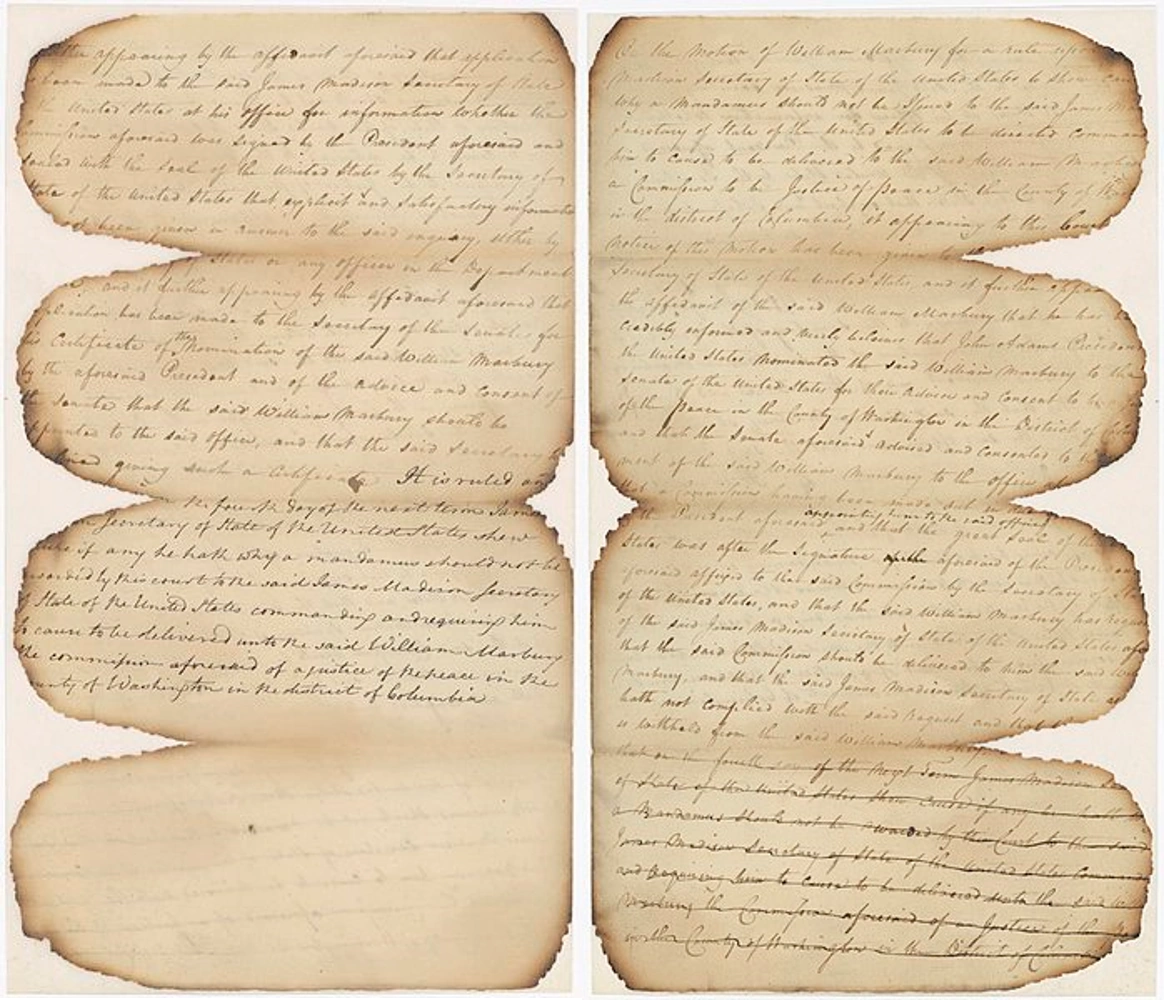 appearing by the affidavit aforesaid that application
been made to the said James Madison Secretary of State
the United States at his office for information whether the
Commissions aforesaid was signed by the President aforesaid and
sealed with the Seal of the United States by the Secretary of
State of the United States that explicit and satisfactory information
been given in answer to the said enquiry, either by
of State or any officer in the Department
and it further appearing by the affidavit aforesaid that
application has been made to the Secretary of the Senate for
Certificate of the Nomination of the said William Marbury
by the aforesaid President and of the advice and consent of
the Senate that the said William Marbury should be
appointed to the said office, and that the said Secretary
giving such a Certificate It is ruled
the fourth day of the next term James
Secretary of State of the United States shew
cause if any he hath why a mandamus should not be
awarded by this court to the said James Madison Secretary
of State of the United States commanding and requiring him
to cause to be delivered unto the said William Marbury
the commission aforesaid of a justice of the peace in the
county of Washington in the district of Columbia
On the Motion of William Marbury for a rule upon
Madison Secretary of State of the United States to show
why a Mandamus should not be Issued to the said James
Secretary of State of the United States to be directed
him to cause to be delivered to the said William
a Commission to be Justice of peace in the County of
in the district of Columbia, it appearing to this Court
notice of this Motion has been given to the
Secretary of State of the United States, and it further
the affidavit of the said William Marbury that he has
credibly informed and verily believes that John Adams President
the United States Nominated the said William Marbury to the
Senate of the United States for their Advice and Consent to be
of the Peace in the County of Washington in the District of
and that the Senate aforesaid advised and consented to the
ment of the said William Marbury to the office
that a Commission having been made out
appointing him to the said office
the President aforesaid and that the great Seal of the
States was after the Signature aforesaid of the President
aforesaid affixed to the said Commission by the Secretary of
of the United States, and that the said William Marbury has
of the said James Madison Secretary of State of the United States
that the said Commission should be delivered to him the said
Marbury, and that the said James Madison Secretary of State
hath not complied with the said Request and that
is withheld from the said William Marbury
that on the fourth day of the Next Term James Madison
of State of the United States show cause if any he hath
a Mandamus should not be awarded by this Court to the said
James Madison Secretary of State of the United States
and requiring him to cause to be delivered unto the said
Marbury the Commission aforesaid of a Justice of the
in the County of Washington in the District of